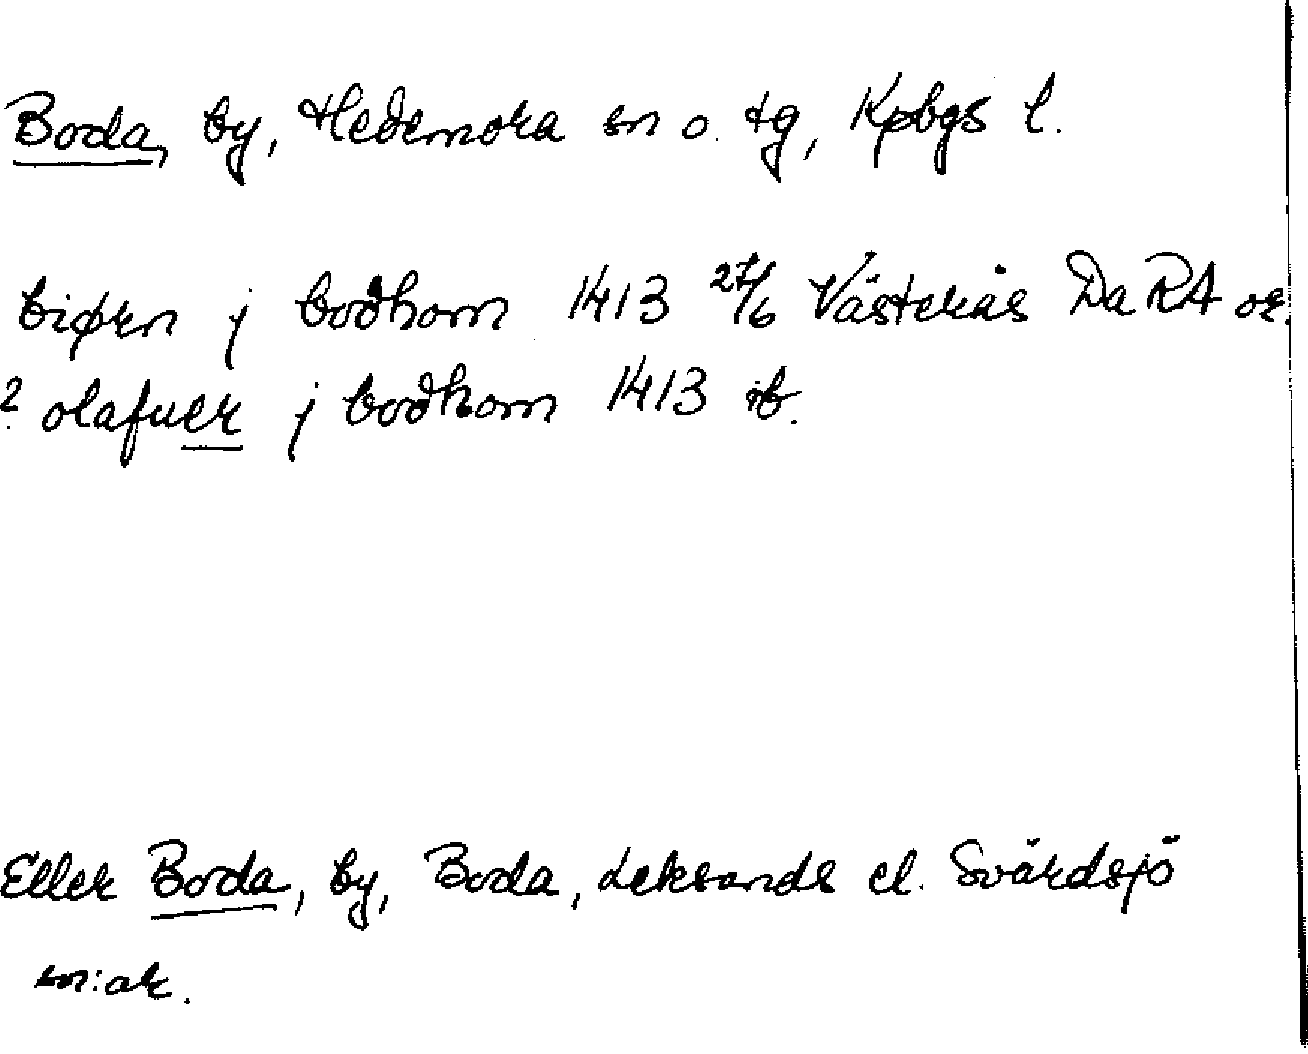 Boda, by, Hedemora sn o. tg, Kpbgs l.
biørn j bodhom 1413 27/6 Västerås Da RA or.
? olafuer j bodhom 1413 ib.
Eller Boda, by, Boda, Leksands el. Svärdsjö
sn:ar.